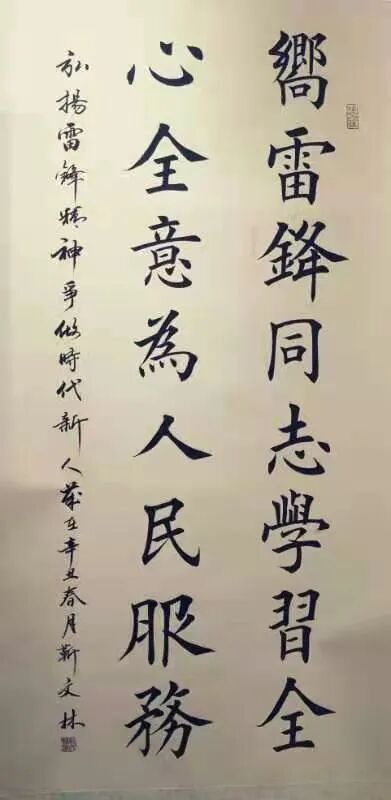 嚮雷鋒同志學習全
心全意為人民服務
弘揚雷鋒精神爭做時代新人歲在辛丑春月靳文林